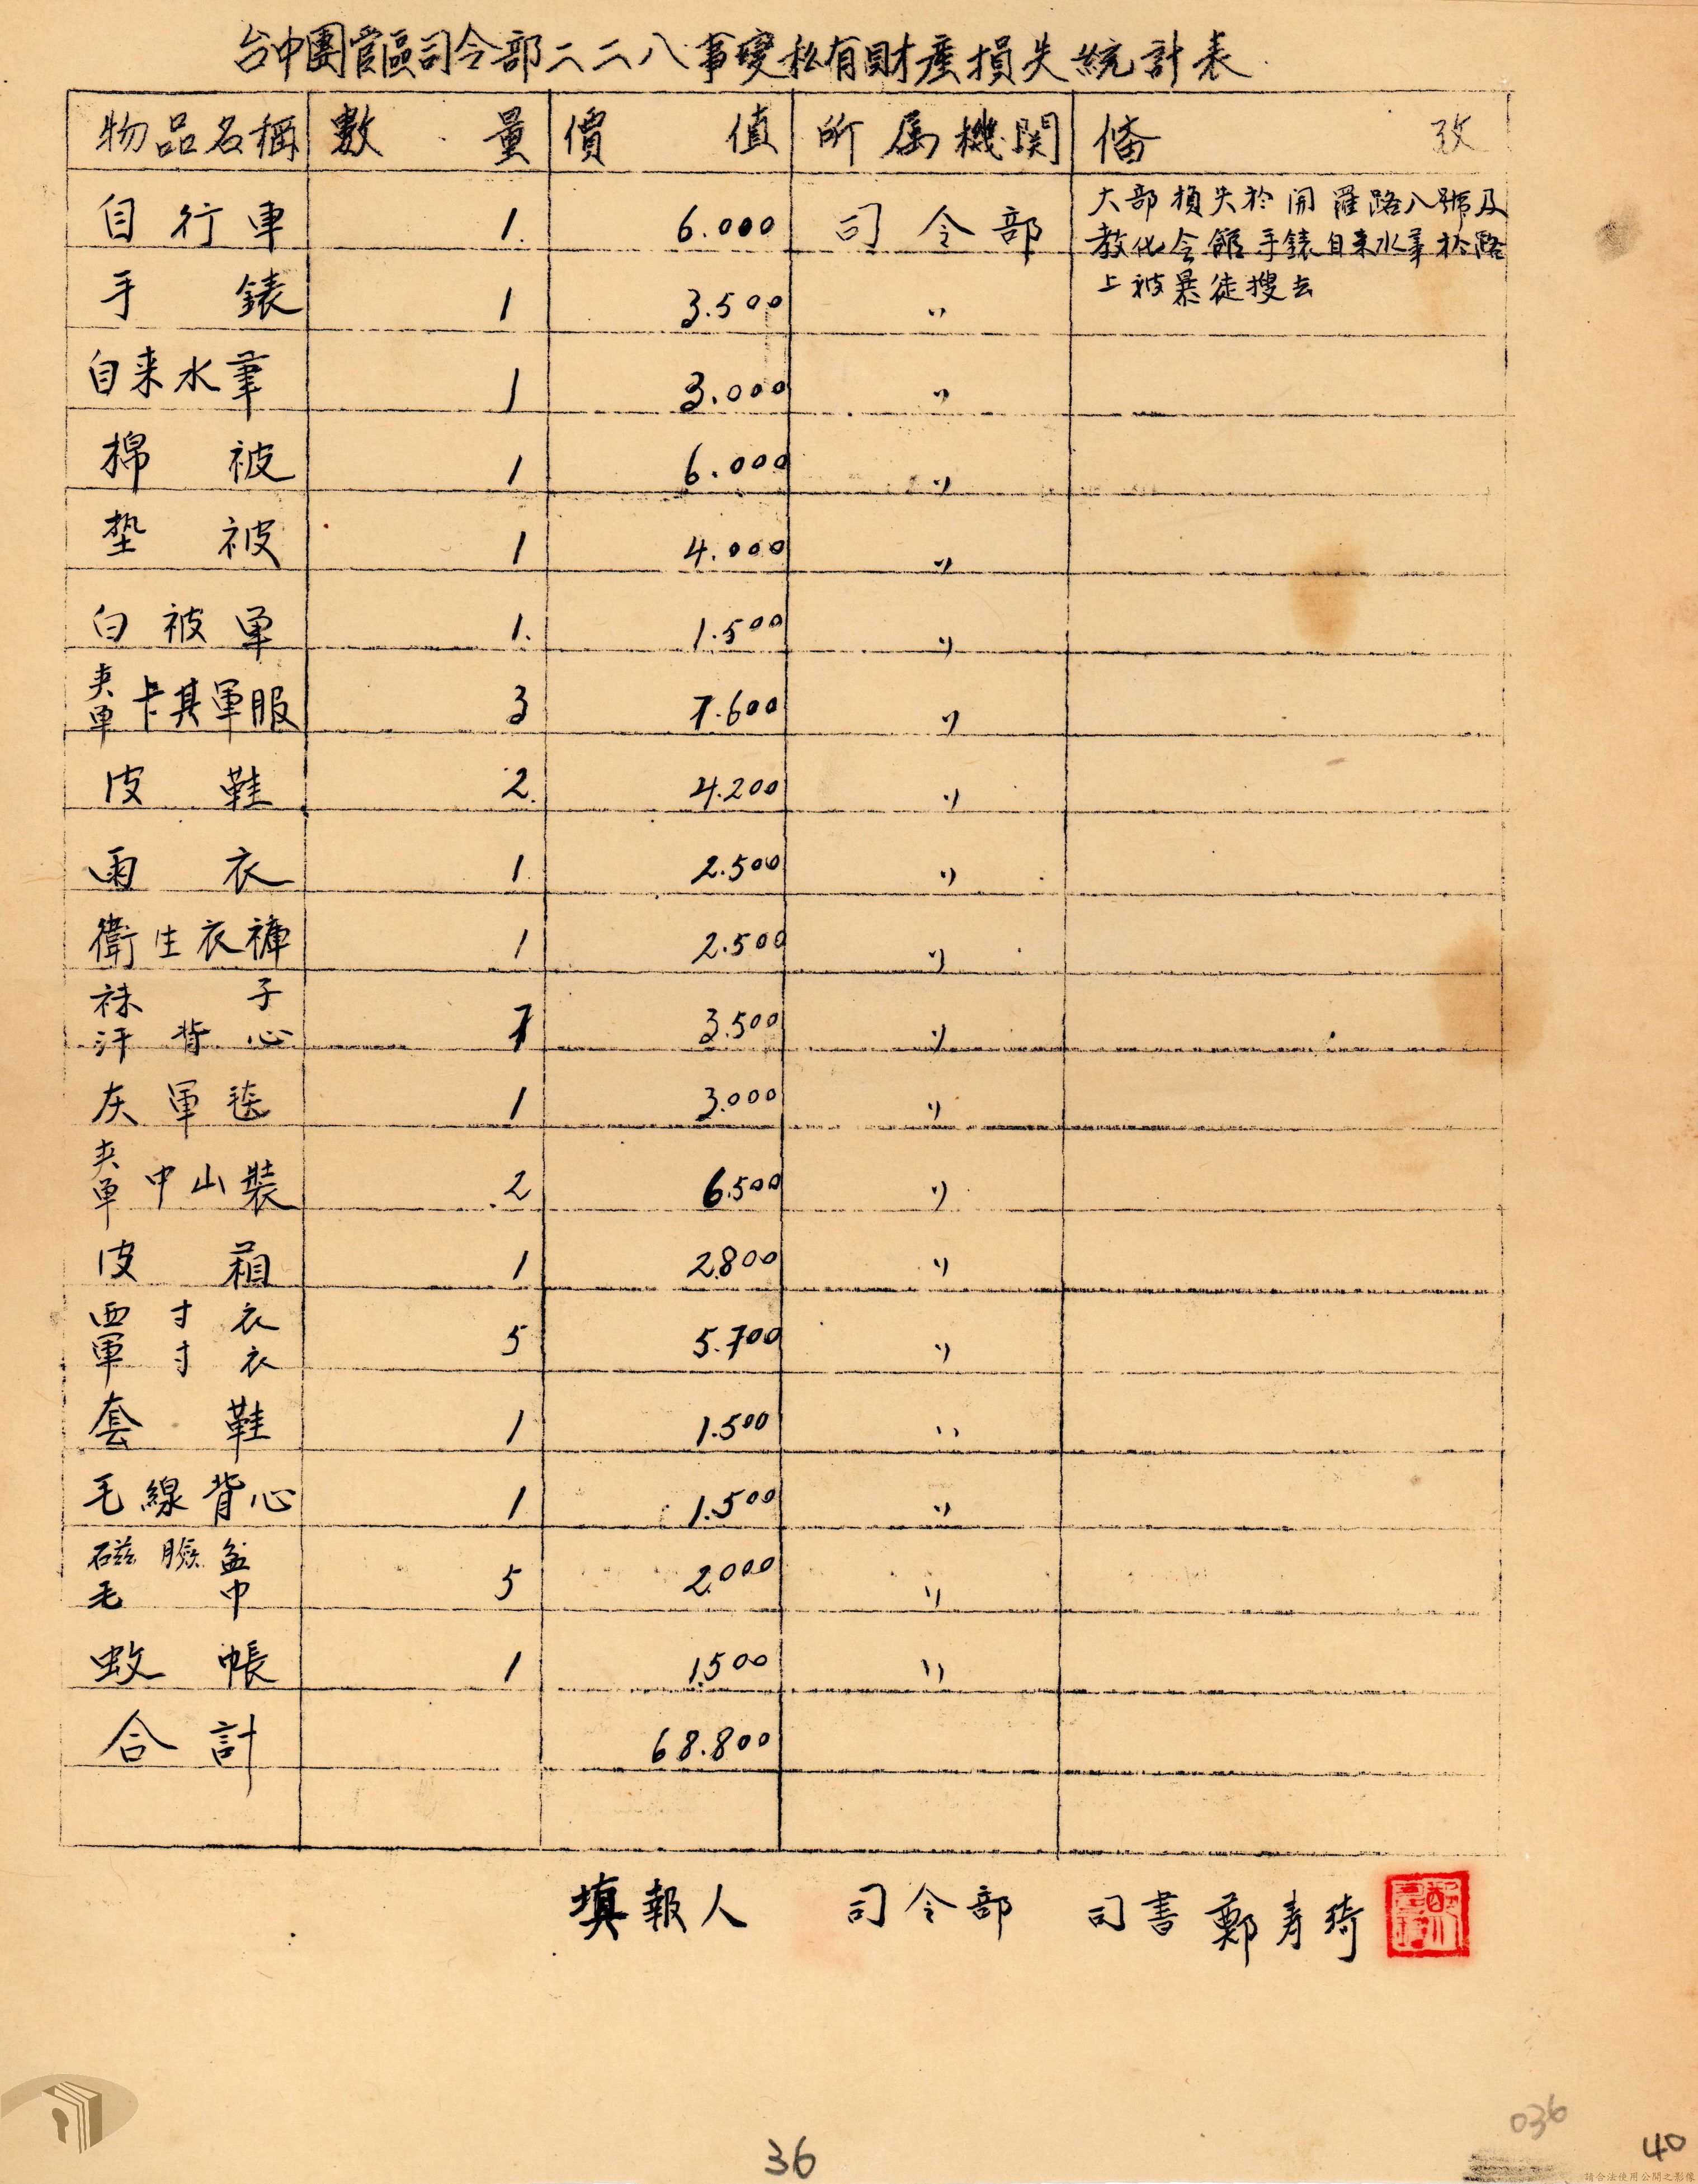 台中團管區司令部二二八事變私有財產損失統計表
物品名稱 數量 價值 所屬機関 偹攷
自行車 1. 6.000 司令部 大部損失於開羅路八號及
教化会館手錶自来水筆於路
上被暴徒搜去
手錶 1 3.500 〃
自来水筆 1 3.000 〃
棉被 1 6.000 〃
垫被 1 4.000 〃
白被單 1. 1.500 〃
夾單卡其軍服 3 7.600 〃
皮鞋 2. 4.200 〃
雨衣 1 2.500 〃
衛生衣褲 1 2.500 〃
袜子
汗背心 7 3.500 〃
灰軍毯 1 3.000 〃
夾單中山裝 2 6.500 〃
皮箱 1 2.800 〃
西寸衣
軍寸衣 5 5.700 〃
套鞋 1 1.500 〃
毛線背心 1 1.500 〃
磁臉盆
毛巾 5 2.000 〃
蚊帳 1 1.500 〃
合計 68.800
填報人 司令部 司書 鄭寿琦
036
36
40
請合法使用公開之影像